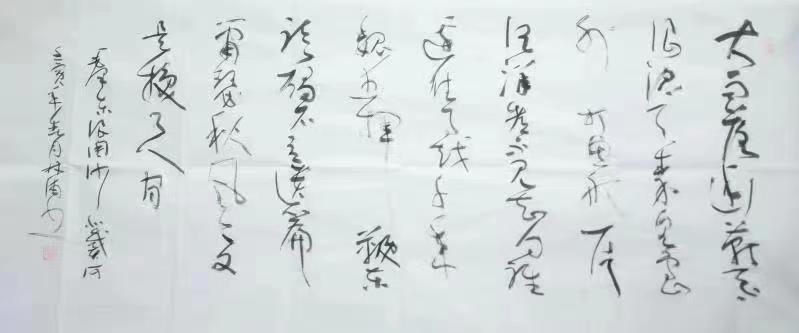 大雨落幽燕白
浪滔天秦皇岛
外打鱼船一片
汪洋都不见知向谁
边往事越千年
魏武挥鞭东
临碣石有遗篇
萧瑟秋风今又
是换了人间
浪淘沙北戴河
壬寅年